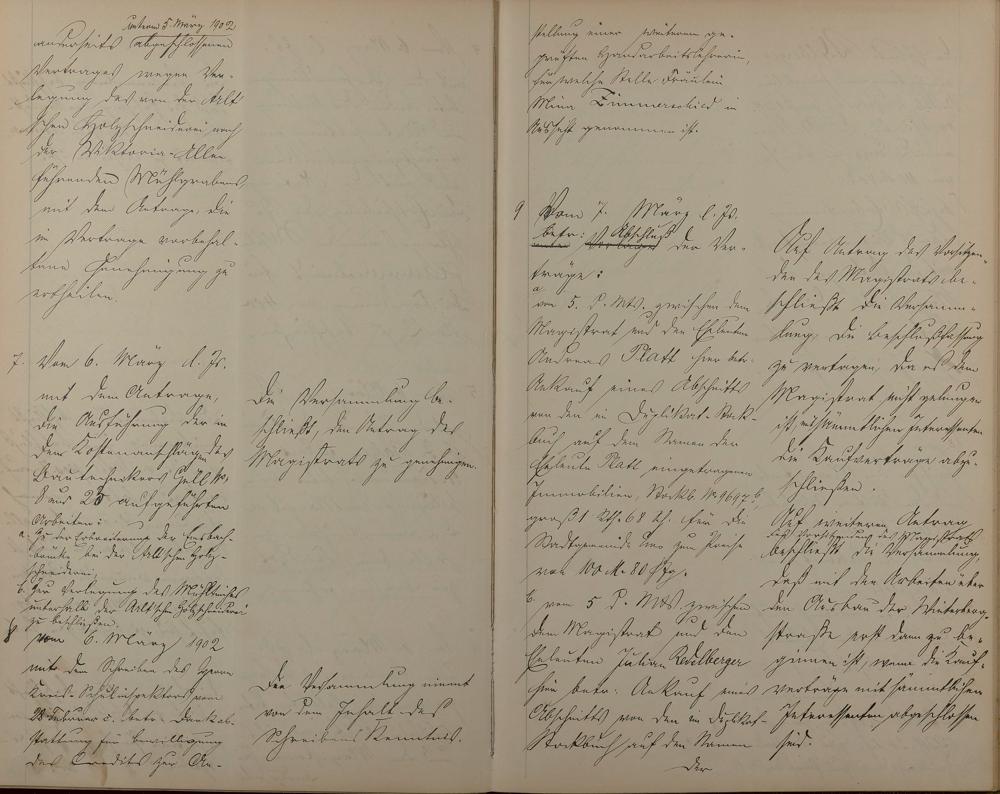 unterm 5. März 1902
anderseits abgeschlossenen
Vertrages wegen Ver-
legung des von der Alt
schen Holzschneiderei nach
der Viktoria-Allee
führenden Mühlgrabens,
mit dem Antrage, die
im Vertrage vorbehal-
tene Genehmigung zu
ertheilen.
7. Vom 6. März d. Js.
mit dem Antrage,
die Ausführung der in
dem Kostenanschlage des
Bautechnikers Gell No
8 und 25 aufgeführten
Arbeiten:
a. Zu der Verbreiterung der
brücke bei der Alt'schen Holz-
schneiderei,
b. Zur Verlegung des Mühlbaches
unterhalb der Alt'schen Holzschneiderei
zu beschließen.
Die Versammlung be-
schließt, den Antrag des
Magistrats zu genehmigen.
8 vom 6. März 1902
mit dem Schreiben des Herrn
Kreis-Schulinspektors vom
28 Februar c. betr. Dankab-
stattung für Bewilligung
des Credits zur An-
Die Versammlung nimmt
von dem Inhalt des
Schreibens Kenntnis.
stellung einer weiteren ge-
prüften Handarbeitslehrerin,
für welche Stelle Fräulein
Mina Zimmerschied in
Aussicht genommen ist.
9 Vom 7. März l. Js.
betr: Abschluß der Ver-
träge:
a
von 5. d. Mts. zwischen dem
Magistrat und den Eheleuten
Andreas Platt hier betr.
Ankauf eines Abschnitts
von den in Duplikat-Stock-
buch auf dem Namen der
Eheleute Platt eingetragenen
Immobilien, Stockb. No 9697
groß 1 Rth. 68 Sch. für die
Stadtgemeinde zum Preise
von 100 M. 80 Pfg.
b. vom 5 d. Mts zwischen
dem Magistrat und den
Eheleuten Julian Redelberger
hier betr. Ankauf eines
Abschnitts von den in Duplikat-
Stockbuch auf den Namen
der
Auf Antrag des Vorsitzen-
den des Magistrats be-
schließt die Versamm-
lung, die Beschlußfassung
zu vertagen, da es dem
Magistrat nicht gelungen
ist, mit sämmtlichen Interessenten
die Kaufverträge abzu-
schließen.
Auf weiteren Antrag
des Vorsitzenden des Magistrats
beschließt die Versammlung,
daß mit den Arbeiten über
den Ausbau der Winterberg-
straße erst dann zu be-
ginnen ist, wenn die Kauf-
verträge mit sämmtlichen
Interessenten abgeschlossen
sind.